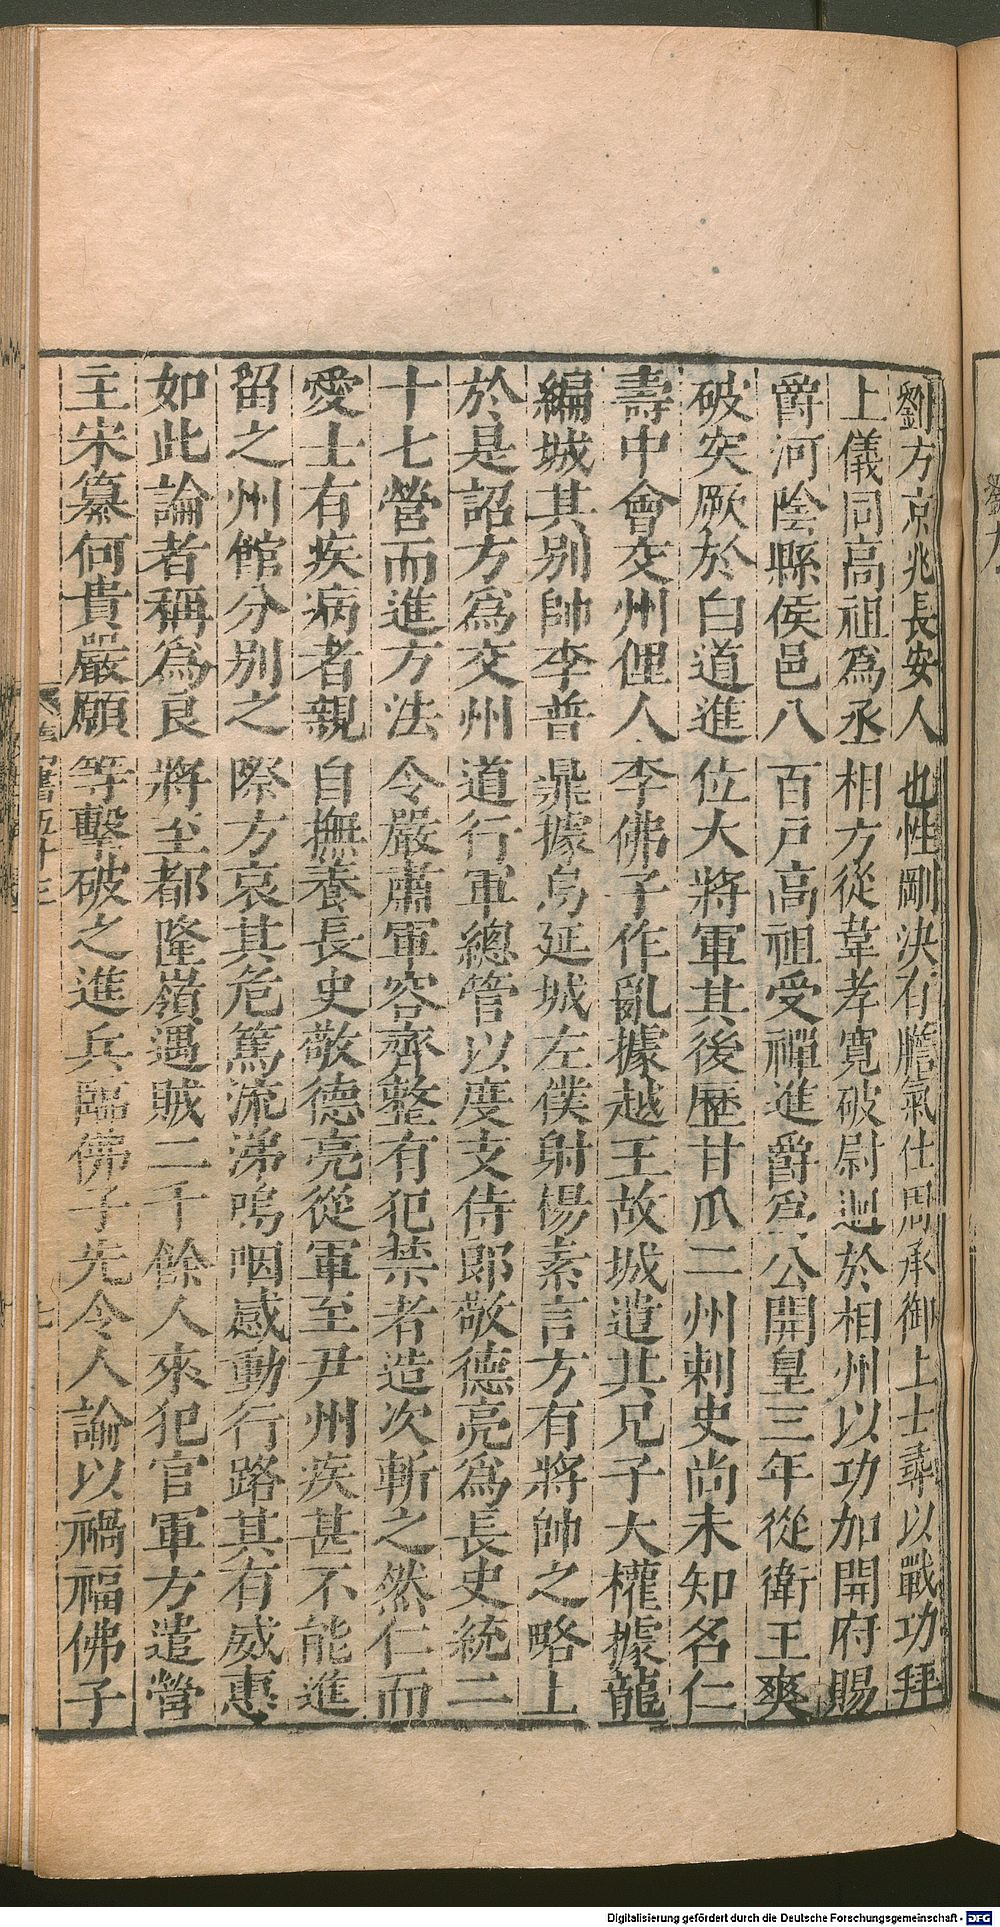 劉方京兆長安人也性剛決有膽氣仕周承御上士尋以戰功拜
上儀同高祖為丞相方從韋孝寬破尉迥於相州以功加開府賜
爵河陰縣侯邑八百戶高祖受禪進爵為公開皇三年從衛王爽
破突厥於白道進位大將軍其後歷甘瓜二州刺史尚未知名仁
壽中會交州俚人李佛子作亂據越王故城遣其兄子大權據龍
編城其別帥李普鼎據烏延城左僕射楊素言方有將帥之略上
於是詔方為交州道行軍總管以度支侍郎敬德亮為長史統二
十七營而進方法令嚴肅軍容齊整有犯禁者造次斬之然仁而
愛士有疾病者親自撫養長史敬德亮從軍至尹州疾甚不能進
留之州館分別之際方哀其危篤流涕嗚咽感動行路其有威惠
如此論者稱為良將至都隆嶺遇賊二千餘人來犯官軍方遣營
主宋纂何貴嚴願等擊破之進兵臨佛子先令人諭以禍福佛子
書五十三
七
劉方
Digitalisierung gefördert durch die Deutsche Forschungsgemeinschaft - DFG